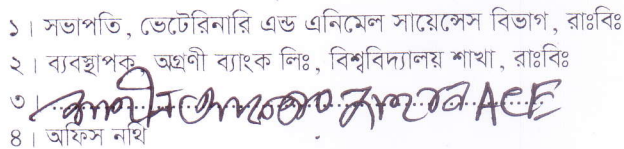 ১। সভাপতি, ভেটেরিনারি এন্ড এনিমেল সায়েন্সেস বিভাগ, রাঃবিঃ
২। ব্যবস্থাপক, অগ্রণী ব্যাংক লিঃ, বিশ্ববিদ্যালয় শাখা, রাঃবিঃ
৩। ACE
৪। অফিস নথি